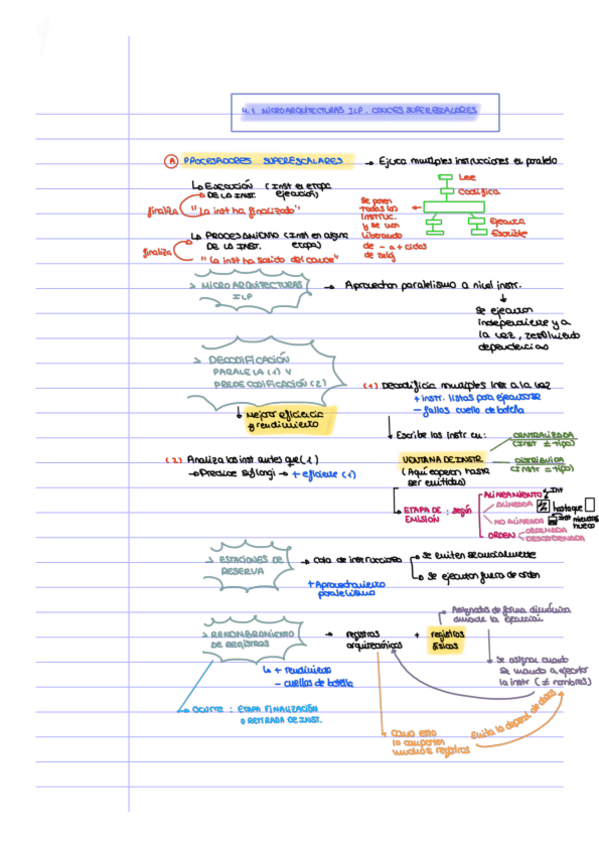 4.1 MICROARQUITECTURAS ILP. CAUCES SUPERESCALARES
A PROCESADORES SUPERESCALARES → Ejecuta multiples instrucciones en paralelo
EJECUCIÓN (Inst en etapa
DE LA INST. ejecución)
finaliza "La inst ha finalizado"
PROCESAMIENTO (Inst en alguna
DE LA INST. etapa)
finaliza "La inst ha salido del cauce"
Se ponen
todas las
INSTRUC.
y se van
liberando
de - a + ciclos
de reloj
Lee
Codifica
Ejecuta
Escribe
> MICROARQUITECTURAS
ILP
→ Aprovechan paralelismo a nivel instr.
Se ejecutan
independiente y a
la vez, resolviendo
dependencias
> DECODIFICACIÓN
PARALELA (1) Y
PREDECODIFICACIÓN (2)
Mejor eficiencia
y rendimiento
(1) Decodificia multiples Inst a la vez
+ instr. listas para ejecutarse
- fallos cuello de botella
Escribe las instr en:
CENTRALIZADA
(Inst ≠ tipo)
DISTRIBUIDA
(Inst = tipo)
VENTANA DE INSTR.
(Aquí esperan hasta
ser emitidas)
(2) Analiza las inst antes que (1)
→ + eficiente (1)
ETAPA DE : según
EMISIÓN
ALINEAMIENTO
ALINEADA
hasta que
NO ALINEADA
mientras
hueco
ORDEN
ORDENADA
DESORDENADA
> ESTACIONES DE
RESERVA
→ Cola de instrucciones
Se emiten secuencialmente
Se ejecutan fuera de orden
+ Aprovechamiento
paralelismo
> RENOMBRAMIENTO
DE REGISTROS
→ registros
arquitectónicos
+ registros
físicos
Asignados de forma dinámica
durante la ejecución
Se asignan cuando
se manda a ejecutar
la instr (≠ nombres)
+ rendimiento
- cuellos de botella
OCURRE : ETAPA FINALIZACIÓN
O RETIRADA DE INST.
Como esto
lo comparten
muchos registros
Evita la depend de datos